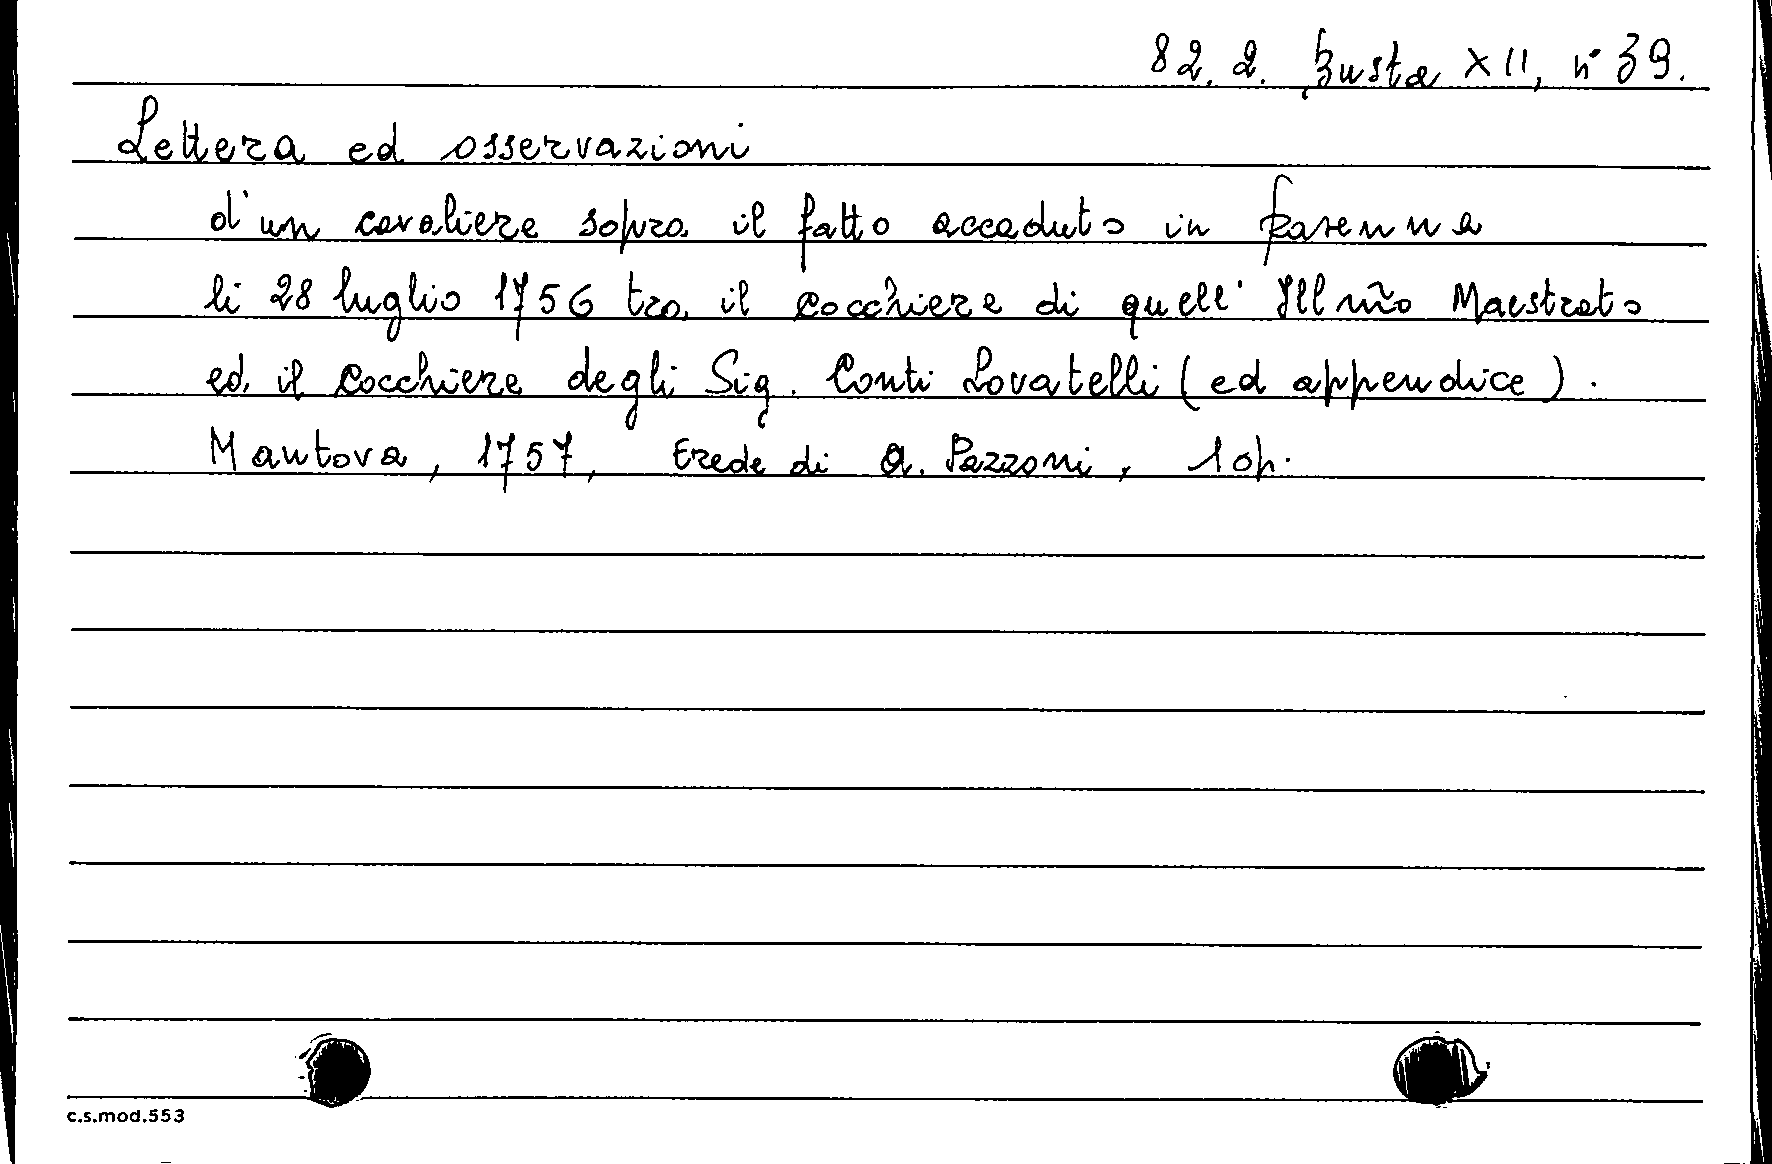 82.2. Busta XII, n° 39.
Lettera ed osservazioni
d'un cavaliere sopra il fatto accaduto in Ravenna
li 28 luglio 1756 tra il cocchiere di quell' Illmõo Maestrato
ed il cocchiere degli Sig. Conti Lovatelli (ed appendice).
Mantova, 1757, Erede di A. Pazzoni, 1 op.
c.s.mod.553